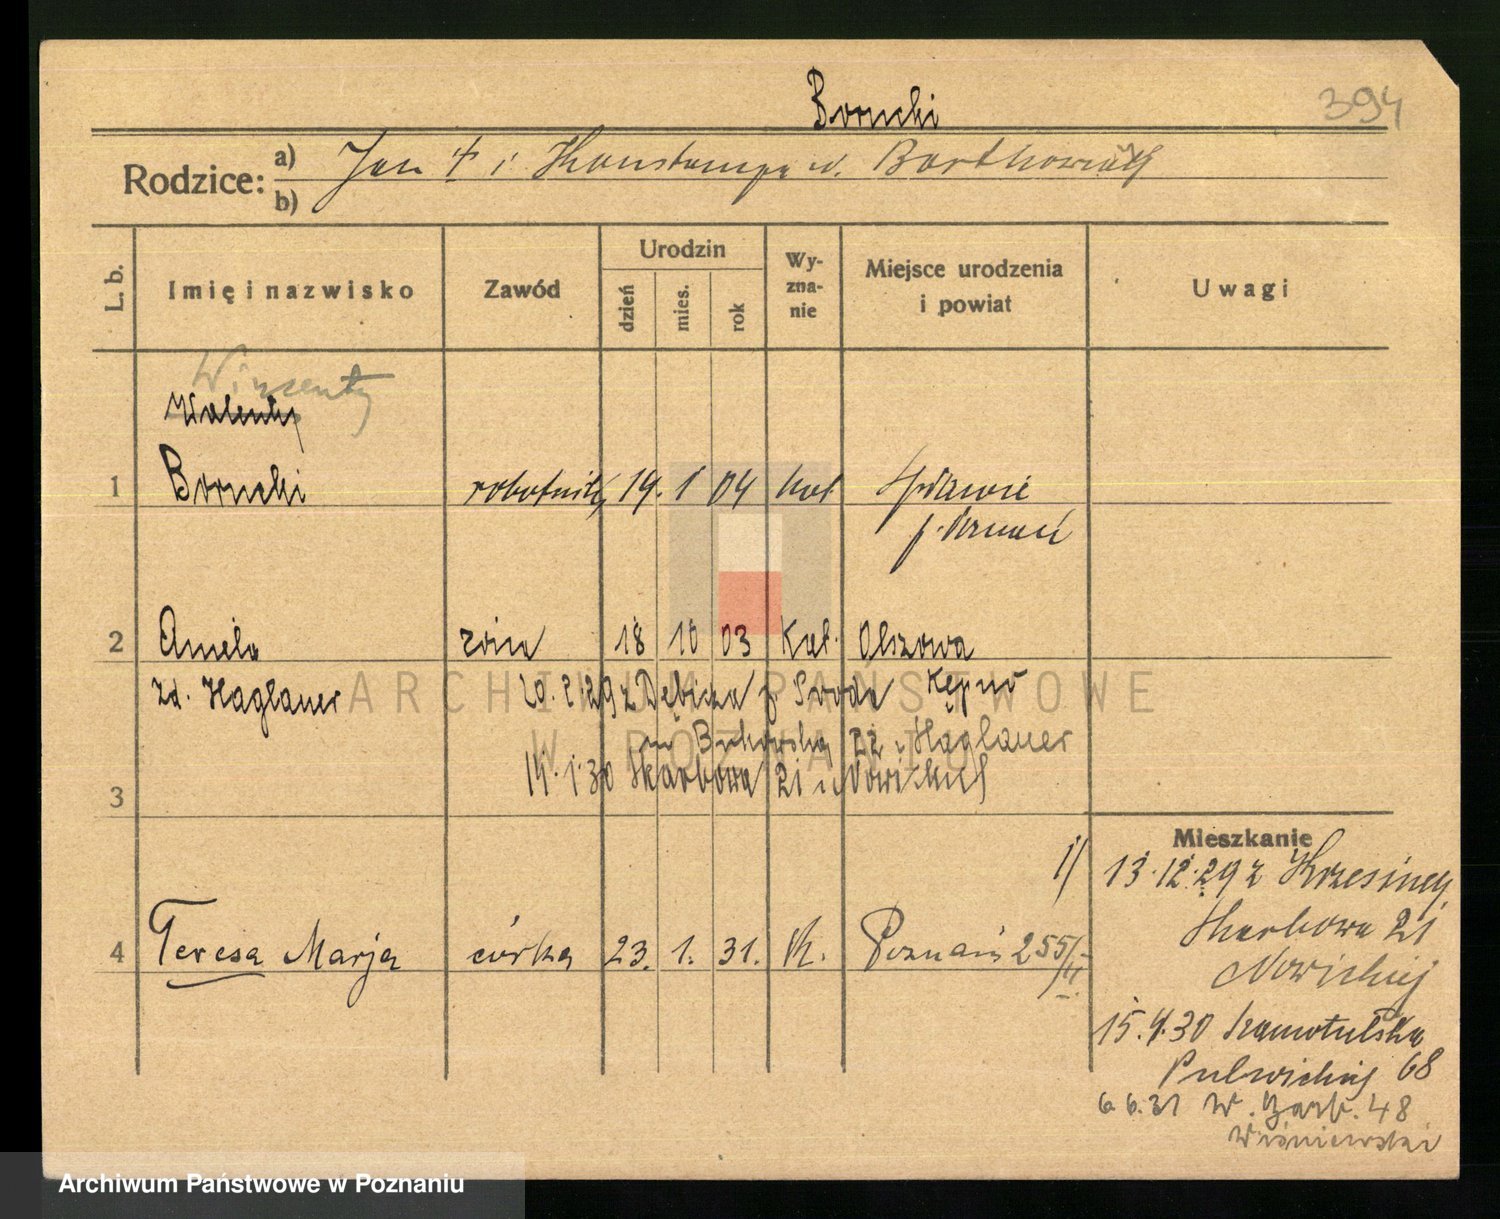 Borucki
394
Rodzice: a) Jan † i Konstancja u. Bartkowiak
b)
L. b.
Imię i nazwisko
Zawód
Urodzin
dzień
mies.
rok
Wy-
zna-
nie
Miejsce urodzenia
i powiat
Uwagi
Wincenty
Walenty
1 Borucki robotnik 19. 1 04 kat. Spławie
p. Poznań
2 Amela żona 18 10 03 Kat. Olszowa
zd. Haglauer 20. 2. 29 z Dębicza p. Środa Kępno
Bukowska 22 u Haglauer
14. 1. 30 Skarbowa 21 u Nowickich
3
Mieszkanie
1/ 13. 12. 29 z Krzesiny
Skarbowa 21
Nowickiej
4 Teresa Marja córka 23. 1. 31. k. Poznań 255/II
15. 4. 30 Szamotulska
68
6. 6. 31 W. Garb. 48
Wiśniewski
ARCHIWUM PAŃSTWOWE
W POZNANIU
Archiwum Państwowe w Poznaniu